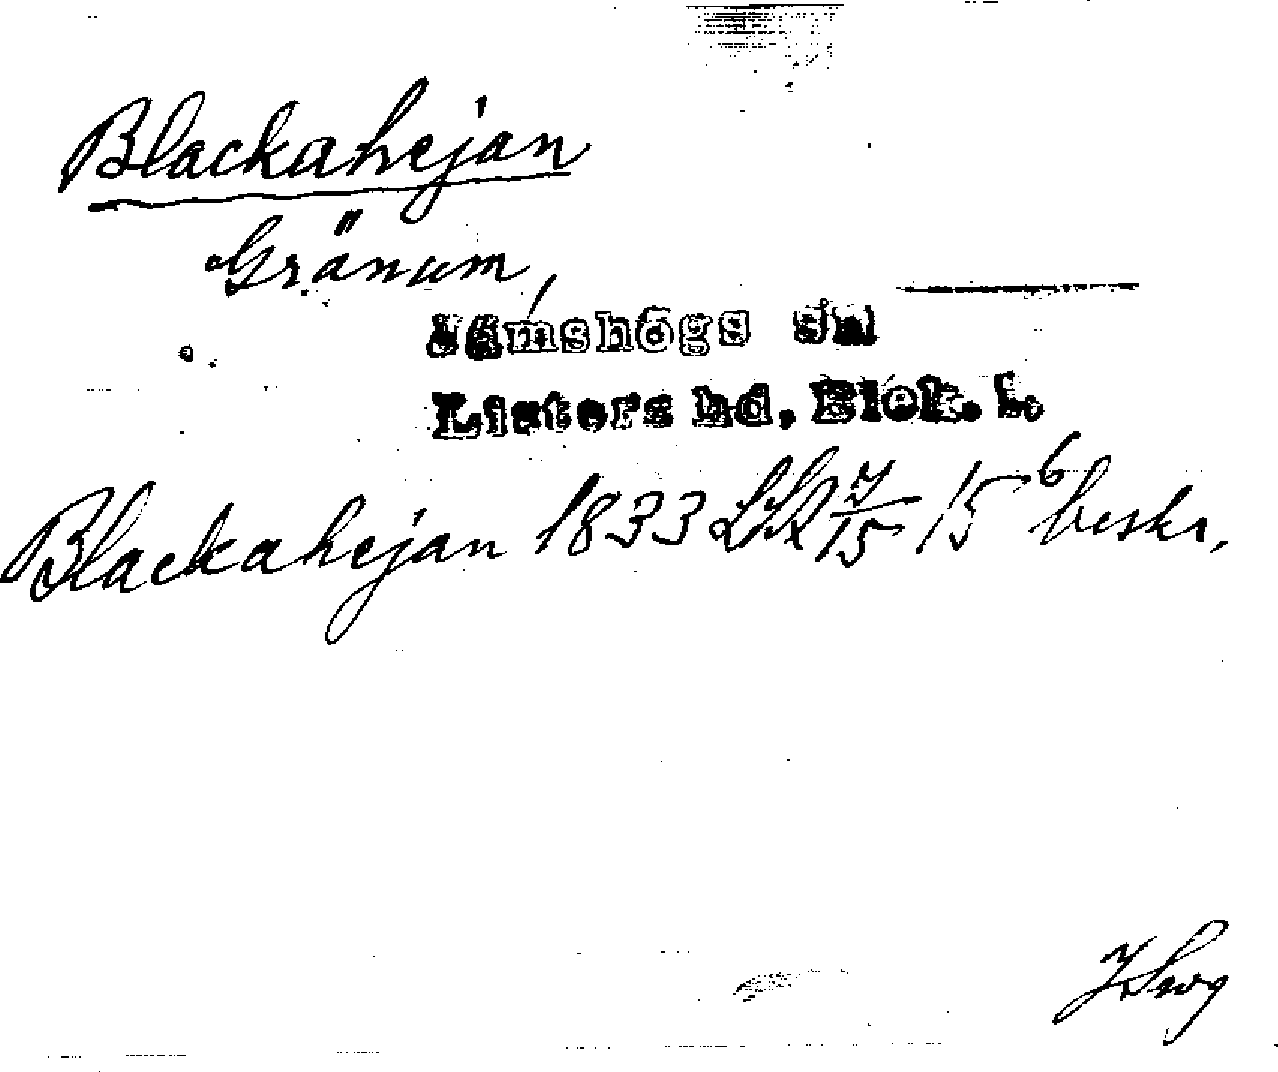 Blackahejan
Gränum,
Jämshögs sn
Listers hd, Blek. l.
Blackahejan 1833 LSA 7/15 15 6 beskr.